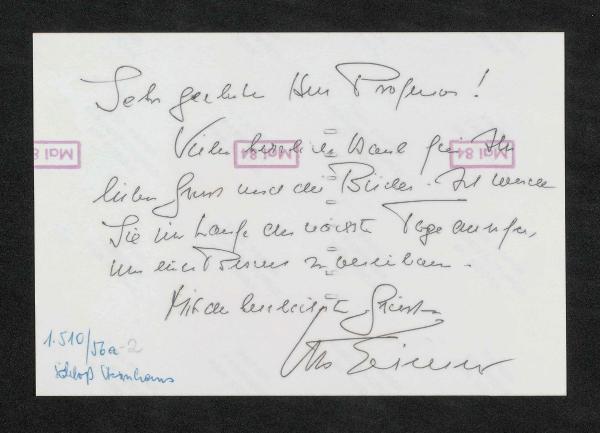 Sehr geehrter Herr Professor!
Vielen herzlichen Dank für Ihr
lieben Gruss und die Bücher. Ich werde
Sie im Laufe der nächsten Tage anrufen,
um einen Termin zu vereinbaren.
Mit den herzlichsten Grüssen
Mai 84
Mai 84
Mai 8
1.510/56a-2
Schloß